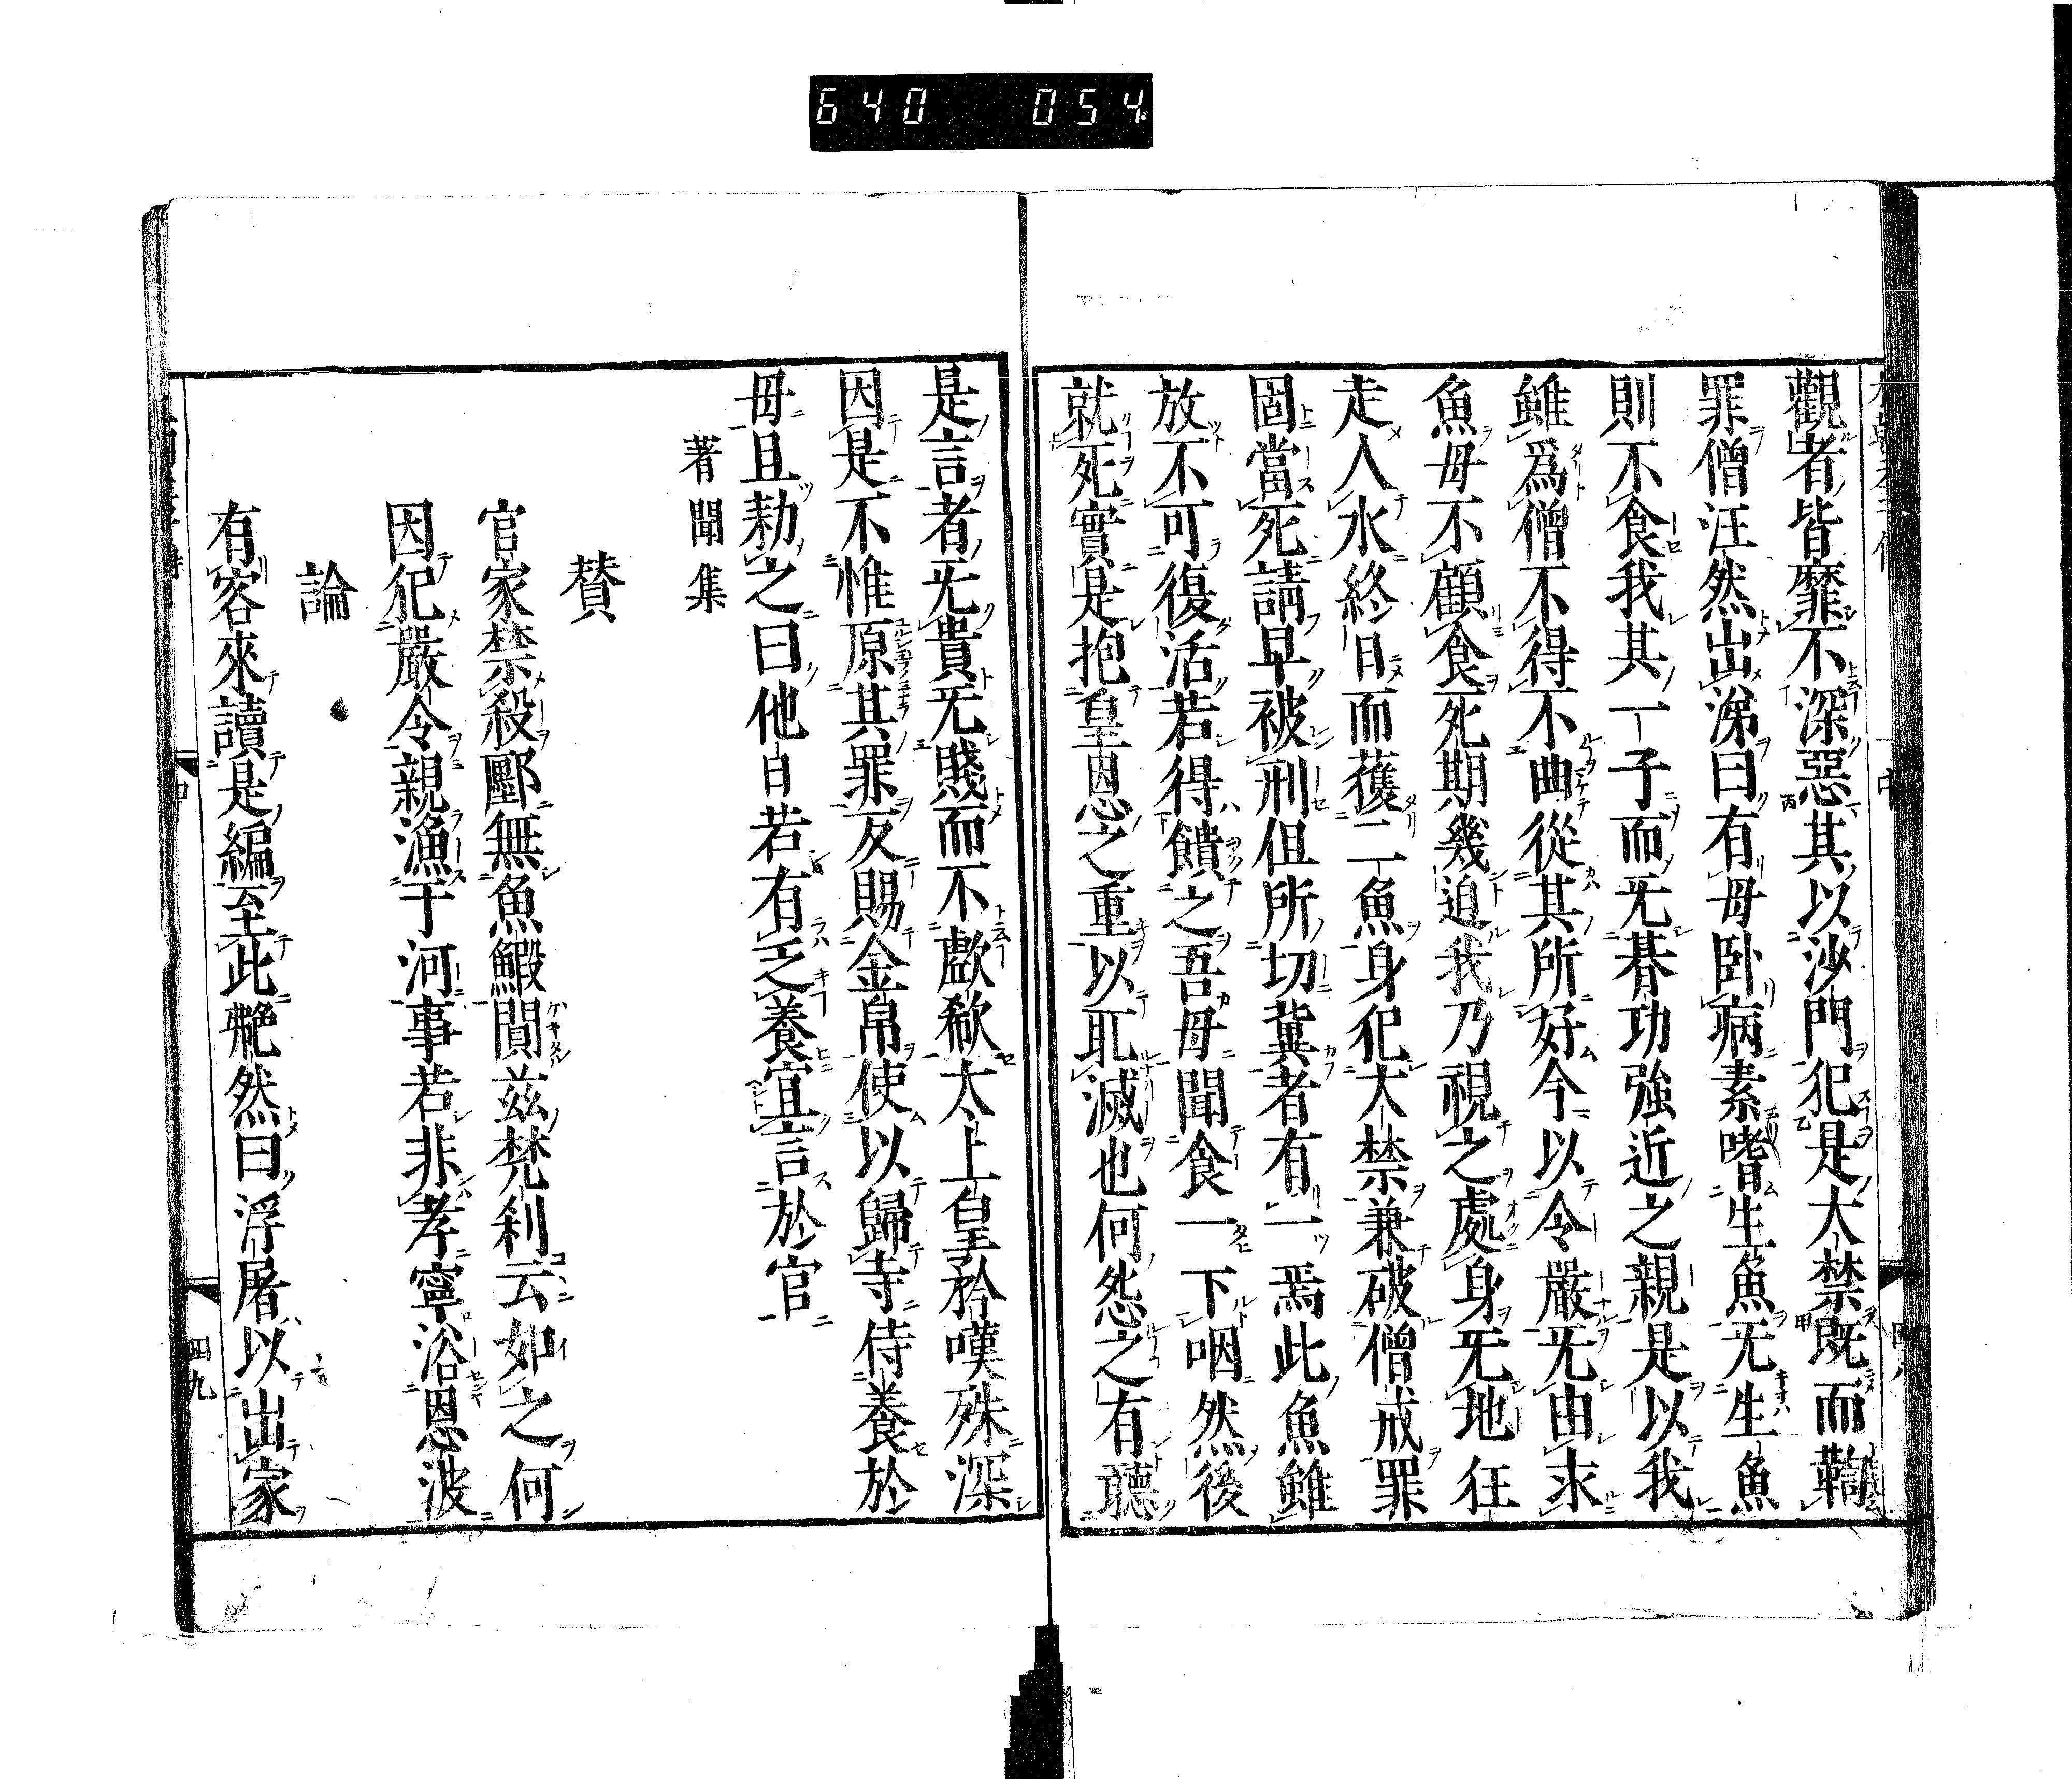 640 054
觀者皆靡不深惡其以沙門犯是大禁既而鞫
罪僧汪然出涕曰有母臥病素嗜生魚无生魚
則不食我其一子而无朞功強近之親是以我
雖爲僧不得不曲從其所好今以令嚴无由求
魚母不顧食死期幾迫我乃視之處身无地狂
走入水終日而獲二魚身犯大禁兼破僧戒罪
固當死請早被刑但所切冀者有一焉此魚雖
放不可復活若得饋之吾母聞食一下咽然後
就死實是抱皇恩之重以耴滅也何怨之有聽
是言者无貴无賤而不歔欷太上皇矜嘆殊深
因是不惟原其罪反賜金帛使以歸寺侍養於
母且勑之曰他日若有乏養宜言於官
著聞集
賛
官家禁殺鄽無魚鰕闃茲梵刹云如之何
因犯嚴令親漁于河事若非孝寧浴恩波
論
有客來讀是編至此艴然曰浮屠以出家
四九